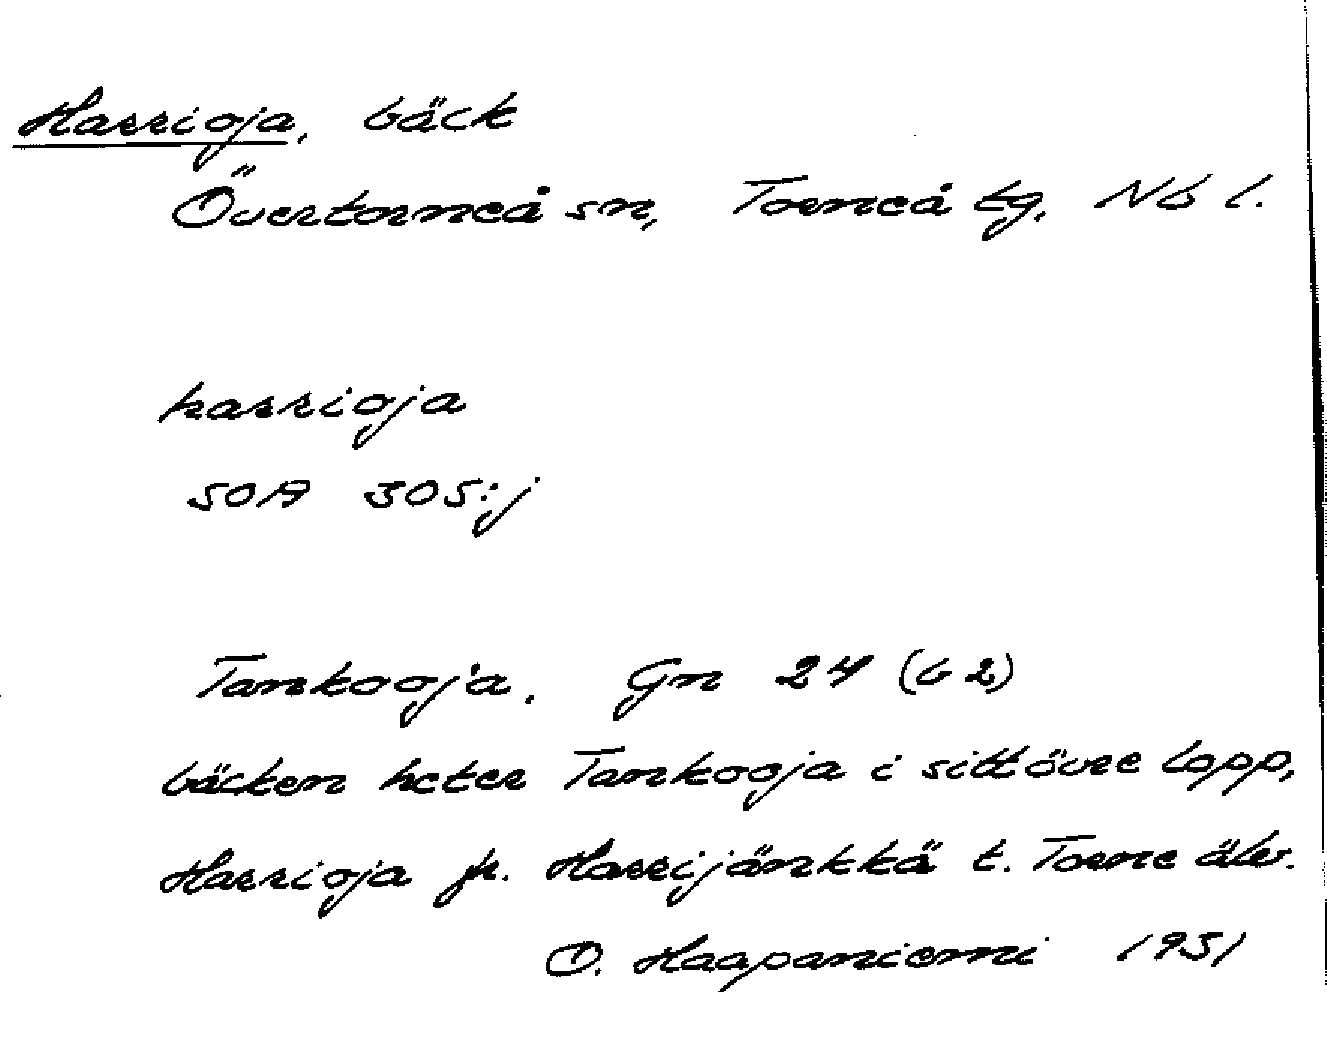 Harrioja, bäck
Övertorneå sn, Torneå tg, Nb l.
harrioja
SOA 305:j
Tankooja. Gn 24 (b2)
bäcken heter Tankooja i sitt övre lopp,
Harrioja fr. Harrijänkkä t. Torne älv.
O. Haapaniemi 1931